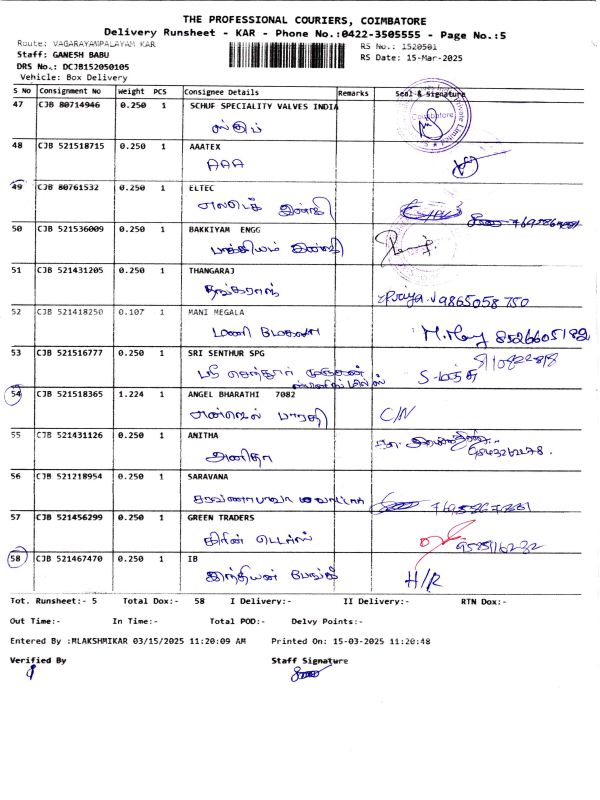 THE PROFESSIONAL COURIERS, COIMBATORE
Delivery Runsheet - KAR - Phone No.:0422-3505555 - Page No.:5
Route: VAGARAYAMPALAYAM KAR
RS No.: 1520501
Staff: GANESH BABU
RS Date: 15-Mar-2025
DRS No.: DCJB152050105
Vehicle: Box Delivery
S No Consignment No Weight PCS Consignee Details Remarks Seal & Signature
47 CJB 80714946 0.250 1 SCHUF SPECIALITY VALVES INDIA
Coimbatore
48 CJB 521518715 0.250 1 AAATEX
AAA
49 CJB 80761532 0.250 1 ELTEC
50 CJB 521536009 0.250 1 BAKKIYAM ENGG
பாக்கியம் இன்ஜி
51 CJB 521431205 0.250 1 THANGARAJ
தங்கராஜ்
9865058750
52 CJB 521418250 0.107 1 MANI MEGALA
மணி மேகலா
8526605182
53 CJB 521516777 0.250 1 SRI SENTHUR SPG
ஸ்ரீ செந்தூர்
54 CJB 521518365 1.224 1 ANGEL BHARATHI 7082
பாரதி C/N
55 CJB 521431126 0.250 1 ANITHA
அனிதா
56 CJB 521218954 0.250 1 SARAVANA
57 CJB 521456299 0.250 1 GREEN TRADERS
கிரீன் டிரேடர்ஸ்
58 CJB 521467470 0.250 1 IB
இந்தியன் பேங்க் H/R
Tot. Runsheet:- 5 Total Dox:- 58 I Delivery:- II Delivery:- RTN Dox:-
Out Time:- In Time:- Total POD:- Delvy Points:-
Entered By :MLAKSHMIKAR 03/15/2025 11:20:09 AM Printed On: 15-03-2025 11:20:48
Verified By Staff Signature